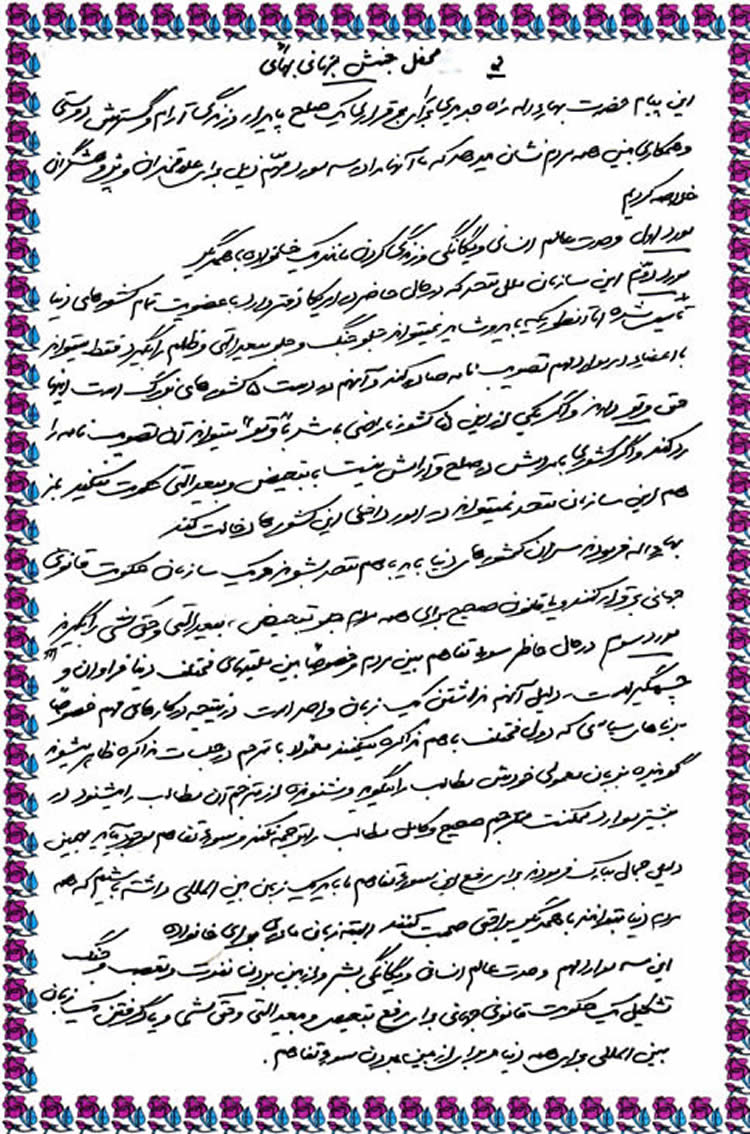 ۲ محفل جنبش جهانی بهائی
این پیام حضرت بهاءاله راه جدیدی برای برقراری یک صلح پایدار و زندگی آرام و گسترش دوستی
و همکاری بین همه مردم نشان میدهد که ما آنها را در سه مورد مهم ذیل برای علاقمندان و پژوهشگران
خلاصه کردیم
مورد اول وحدت عالم انسانی و یگانگی و زندگی کردن مانند یک خانواده با همدیگر
مورد دوم این سازمان ملل متحد که در حال حاضر در امریکا دفتر دارد با عضویت تمام کشورهای دنیا
تأسیس شده اما آنطوریکه باید و شاید نمیتواند جلو جنگ و جلو بیعدالتی و ظلم را بگیرد فقط میتواند
با اعضاء در موارد مهم تصویب نامه صادر کند و آنهم در دست ۵ کشورهای بزرگ است اینها
حق وتو دارند و اگر یکی از این ۵ کشور ناراضی باشد با وتو میتواند آن تصویب نامه را
رد کند و اگر کشوری با مردمش در صلح و آرامش نیست با تبعیض و بیعدالتی حکومت میکند باز
هم این سازمان متحد نمیتواند در امور داخلی این کشورها دخالت کند
بهاءاله فرمودند سران کشورهای دنیا باید با هم متحد بشوند و یک سازمان حکومت قانونی
جهانی برقرار کنند و با قانون صحیح برای همه مردم جلو تبعیض، بیعدالتی و حق کشی را بگیرند
مورد سوم در حال حاضر سوء تفاهم بین مردم و خصوصاً بین ملیتهای مختلف دنیا فراوان و
چشمگیر است دلیل آنهم نداشتن یک زبان واحد است در نتیجه در کارهای مهم خصوصاً
سیاسی که دول مختلف با هم مذاکره میکنند معمولا با مترجم در جلسات مذاکره حاضر میشوند
گوینده بزبان معمولی خودش مطالب را میگوید و شنونده از مترجم آن مطالب را میشنود در
بیشتر موارد ممکنست مترجم صحیح و کامل مطالب را ترجمه نکند و سوء تفاهم بوجود بیآید بهمین
دلیل جمال مبارک فرمودند برای رفع این سوء تفاهم ما باید یک زبان بین المللی داشته باشیم که همه
مردم دنیا بتوانند با همدیگر براحتی صحبت کنند البته زبان مادری برای خانواده
این سه موارد مهم وحدت عالم انسانی و یگانگی بشر و از بین بردن نفرت و تعصب و جنگ
تشکیل یک حکومت قانونی جهانی برای رفع تبعیض و بیعدالتی و حق کشی و یاد گرفتن یک زبان
بین المللی برای همه دنیا و برای از بین بردن سوء تفاهم.